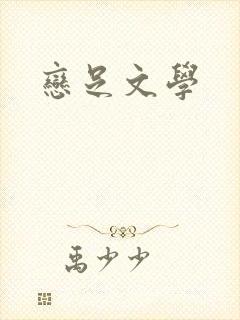 戀足文學
禹少少